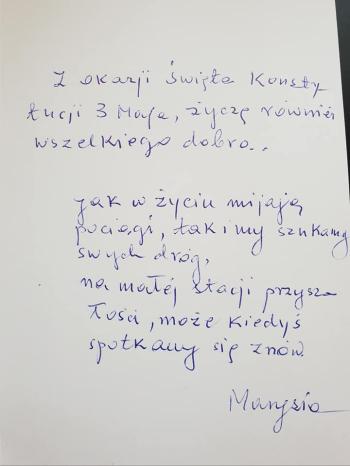 Z okazji święta Konsty
tucji 3 Maja, życzę również
wszelkiego dobra..
Jak w życiu mijają
pociągi, tak i my szukamy
swych dróg,
na małej stacji przysz
łości, może kiedyś
spotkamy się znów
Marysia